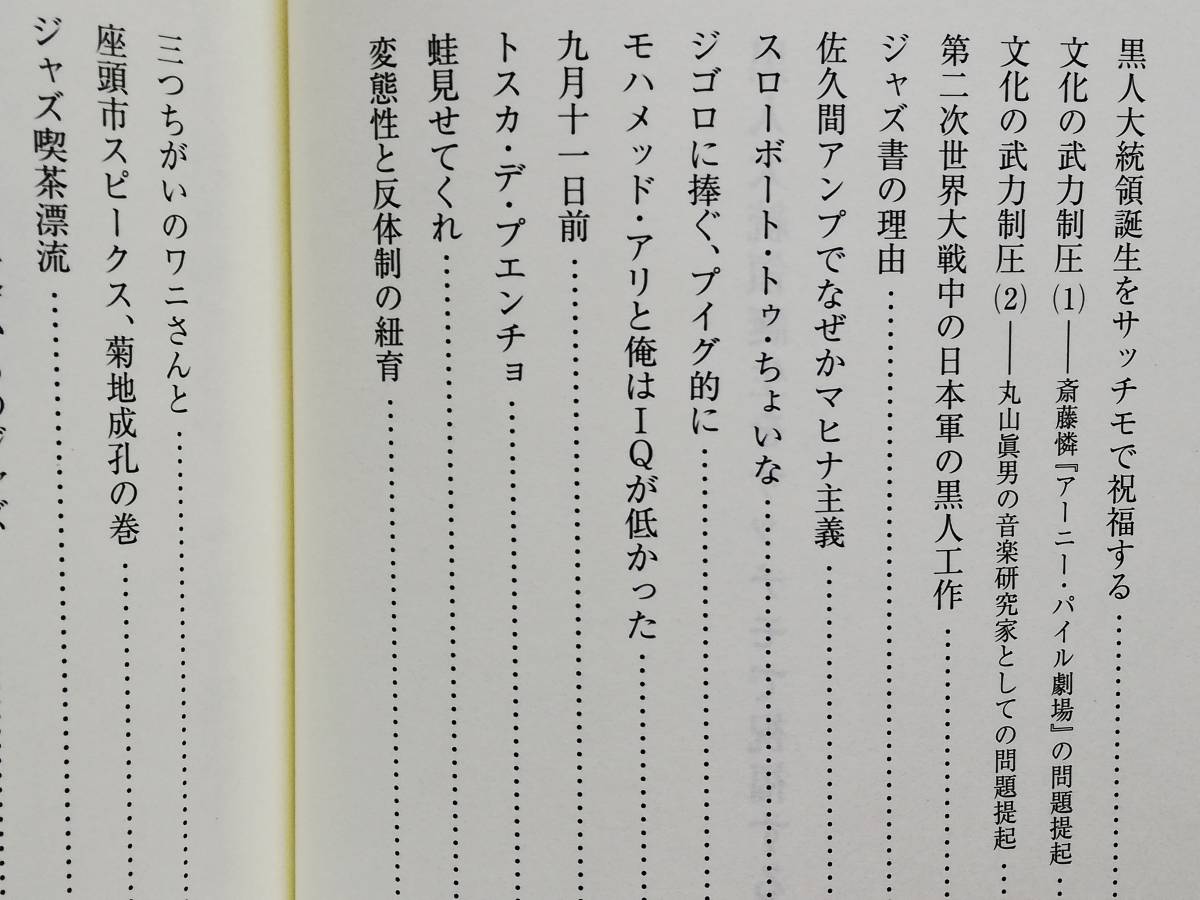 黒人大統領誕生をサッチモで祝福する……………
文化の武力制圧(1)――斎藤憐『アーニー・パイル劇場』の問題提起……
文化の武力制圧(2)――丸山眞男の音楽研究家としての問題提起……
第二次世界大戦中の日本軍の黒人工作……………
ジャズ書の理由……………
佐久間アンプでなぜかマヒナ主義……………
スローボート・トゥ・ちょいな……………
ジゴロに捧ぐ、プイグ的に……………
モハメッド・アリと俺はIQが低かった……………
九月十一日前……………
トスカ・デ・プエンチョ……………
蛙見せてくれ……………
変態性と反体制の紐育……………
三つちがいのワニさんと……………
座頭市スピークス、菊地成孔の巻……………
ジャズ喫茶漂流……………